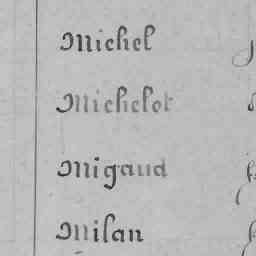 Michel
Michelot
Migaud
Milan